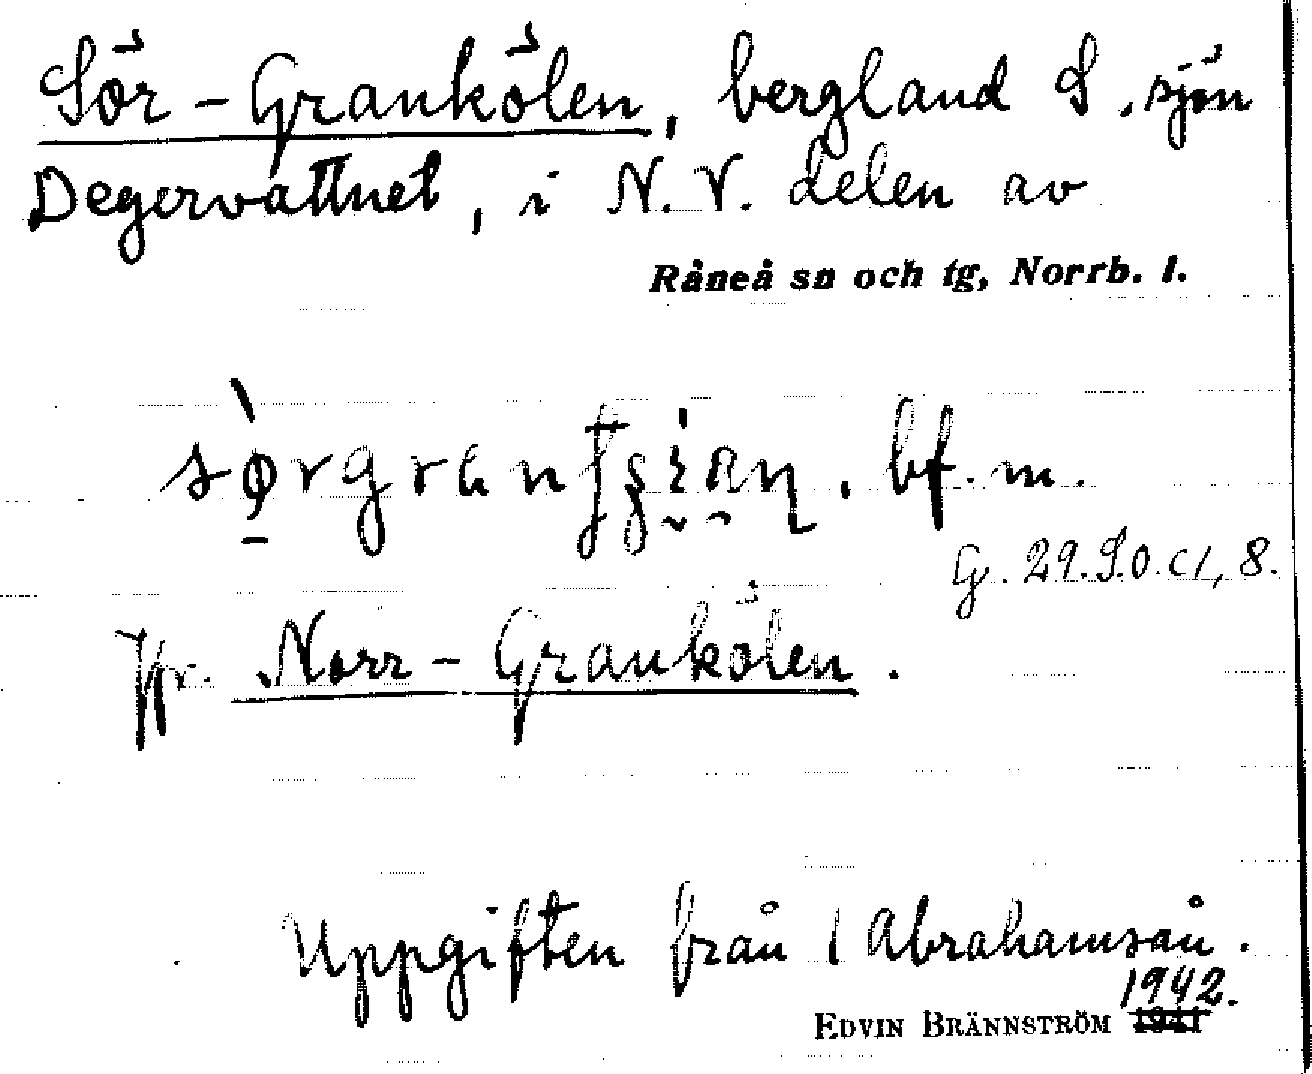 Sör-Grankölen, bergland S. sjön
Degervattnet, i N.V. delen av
Råneå sn och tg, Norrb. l.
bf. m.
G. 29. S.O. c1, 8.
Jfr. Norr-Grankölen.
Uppgiften från Abrahamså.
1942.
EDVIN BRÄNNSTRÖM 1941